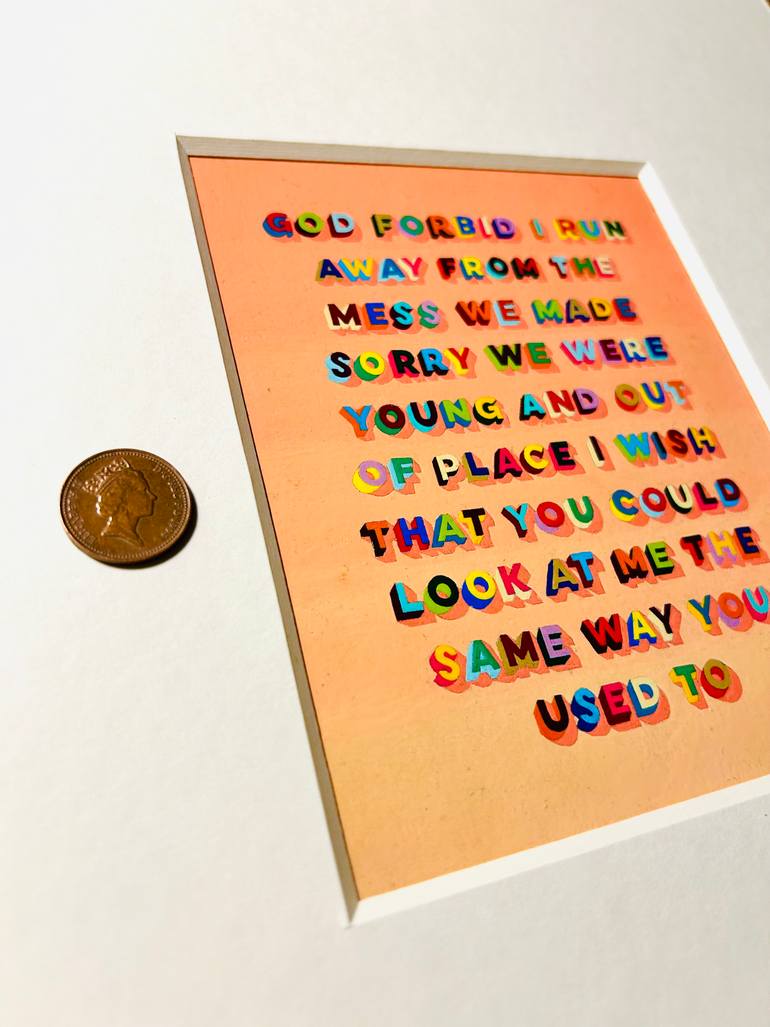 GOD FORBID I RUN
AWAY FROM THE
MESS WE MADE
SORRY WE WERE
YOUNG AND OUT
OF PLACE I WISH
THAT YOU COULD
LOOK AT ME THE
SAME WAY YOU
USED TO